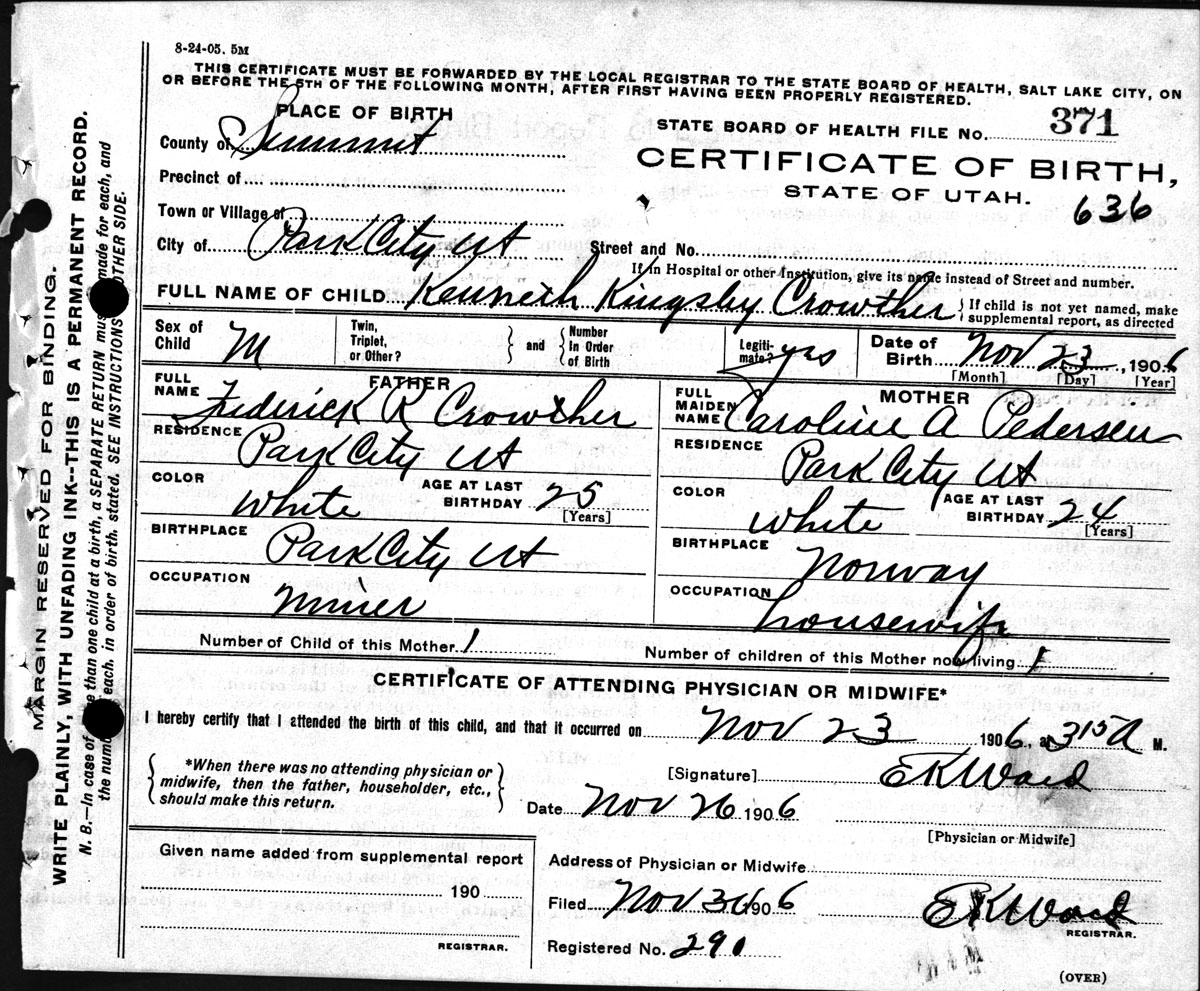 8-24-05. 5M
THIS CERTIFICATE MUST BE FORWARDED BY THE LOCAL REGISTRAR TO THE STATE BOARD OF HEALTH, SALT LAKE CITY, ON
OR BEFORE THE 5TH OF THE FOLLOWING MONTH, AFTER FIRST HAVING BEEN PROPERLY REGISTERED.
PLACE OF BIRTH
STATE BOARD OF HEALTH FILE No. 371
County of Summit
CERTIFICATE OF BIRTH,
Precinct of
STATE OF UTAH.
636
Town or Village of
City of Park City Ut
Street and No.
If in Hospital or other Institution, give its name instead of Street and number.
FULL NAME OF CHILD Kenneth Kingsby Crowther
If child is not yet named, make
supplemental report, as directed
Sex of Child M
Twin, Triplet, or Other?
and
Number In Order of Birth
Legitimate? yes
Date of Birth Nov 23, 1906
[Month] [Day] [Year]
FATHER
FULL NAME Frederick R Crowther
RESIDENCE Park City Ut
COLOR White
AGE AT LAST BIRTHDAY 25
[Years]
BIRTHPLACE Park City Ut
OCCUPATION Miner
MOTHER
FULL MAIDEN NAME Caroline A Pedersen
RESIDENCE Park City Ut
COLOR White
AGE AT LAST BIRTHDAY 24
[Years]
BIRTHPLACE Norway
OCCUPATION housewife
Number of Child of this Mother 1
Number of children of this Mother now living 1
CERTIFICATE OF ATTENDING PHYSICIAN OR MIDWIFE*
I hereby certify that I attended the birth of this child, and that it occurred on Nov 23 1906, at 3 15 A M.
*When there was no attending physician or
midwife, then the father, householder, etc.,
should make this return.
[Signature] E K Ward
Date Nov 26 1906
[Physician or Midwife]
Given name added from supplemental report
190
REGISTRAR.
Address of Physician or Midwife
Filed Nov 30 1906
E K Ward
REGISTRAR.
Registered No. 290
(OVER)
MARGIN RESERVED FOR BINDING.
WRITE PLAINLY, WITH UNFADING INK--THIS IS A PERMANENT RECORD.
N. B.—In case of than one child at a birth, a SEPARATE RETURN must made for each, and
the num each, in order of birth, stated. SEE INSTRUCTIONS OTHER SIDE.